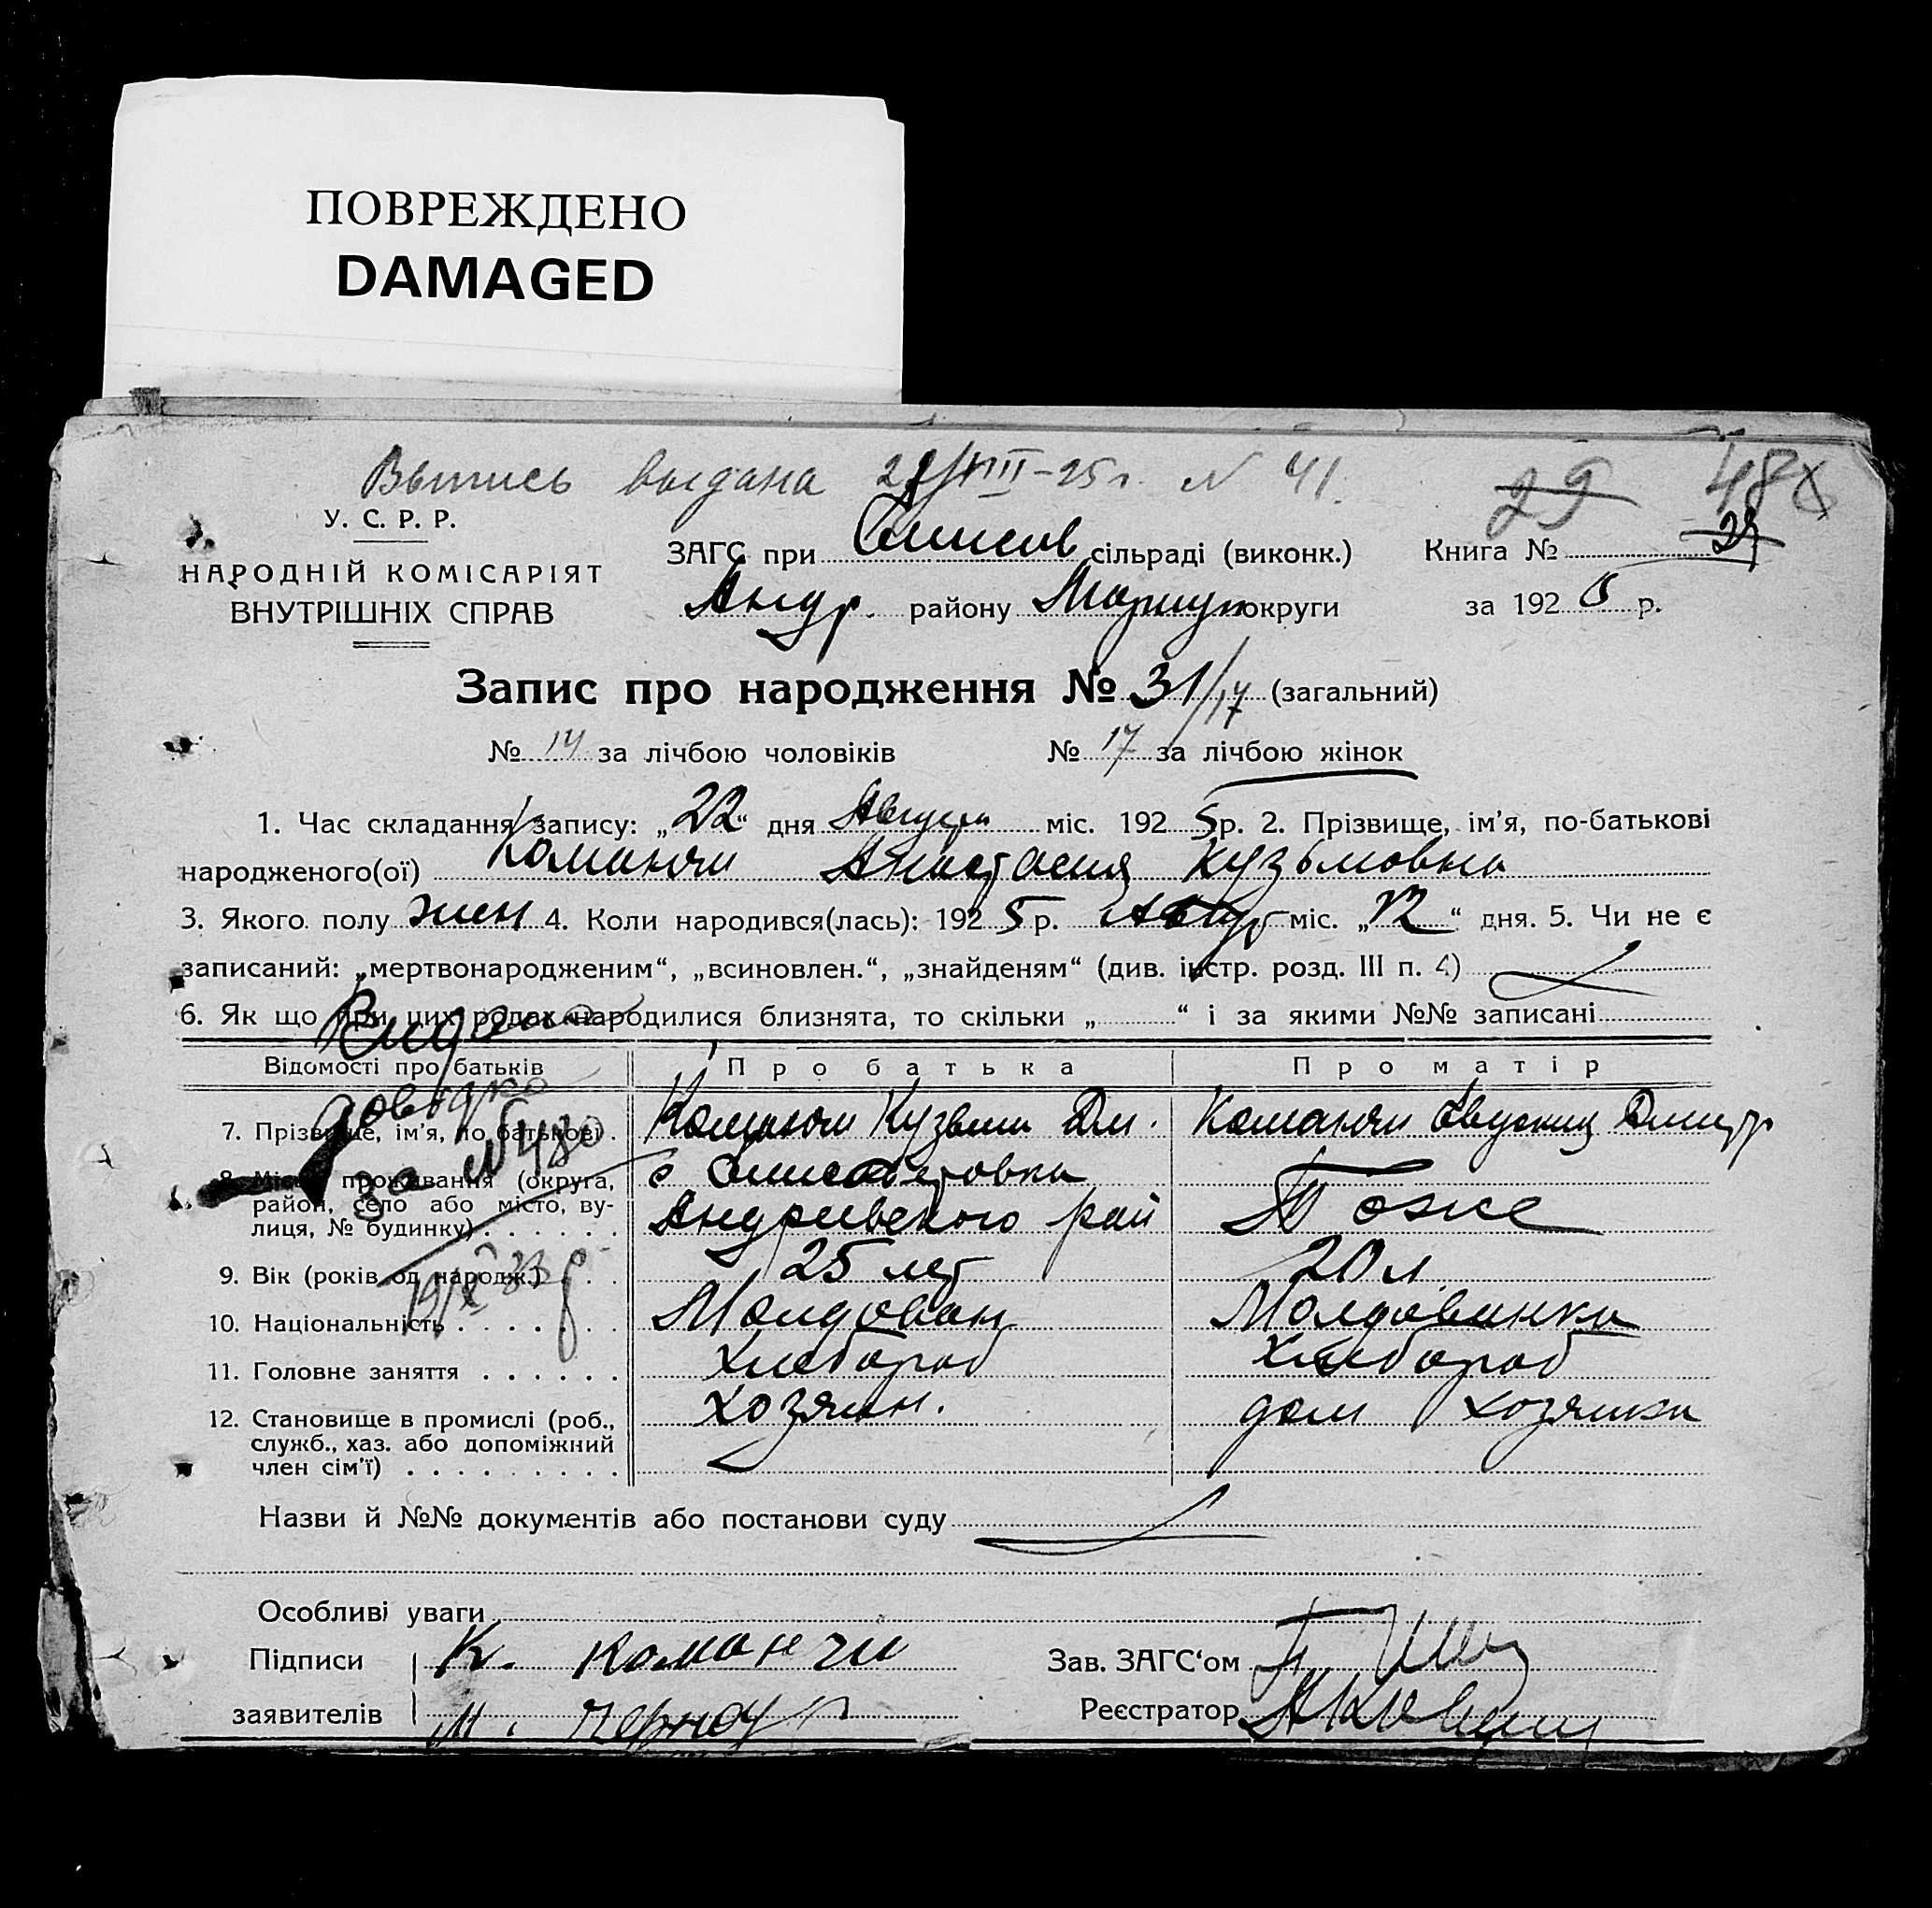 ПОВРЕЖДЕНО
DAMAGED
Выпись выдана VIII-25 г. N 41.
29 48
У. С. Р. Р.
НАРОДНІЙ КОМІСАРІЯТ
ВНУТРІШНІХ СПРАВ
ЗАГС при Елисов сільраді (виконк.) Книга № 29
Андр. району Мариуп округи за 1925 р.
Запис про народження № 31/17 (загальний)
№ 14 за лічбою чоловіків № 17 за лічбою жінок
1. Час складання запису: „22“ дня Августа міс. 1925 р. 2. Прізвище, ім'я, по-батькові
народженого(ої) Команчи Анастасия Кузьмовна
3. Якого полу жен 4. Коли народився(лась): 1925 р. Авгус міс. „12“ дня. 5. Чи не є
записаний: „мертвонародженим“, „всиновлен.“, „знайденям“ (див. інстр. розд. III п. 4)
6. Як що при цих родах народилися близнята, то скільки „ “ і за якими №№ записані
Видана
довідка
за № 480
19/IX 33
Відомості про батьків Про батька Про матір
7. Прізвище, ім'я, по батькові. Команчи Кузьма Дм. Команчи Дмитр
8. Місце проживання (округа, с Елисаветовка
район, село або місто, ву- Андреевского рай Тоже
лиця, № будинку)
9. Вік (років од народж.) 25 лет 20 л
10. Національність Молдован Молдаванка
11. Головне заняття Хлебороб Хлебороб
12. Становище в промислі (роб., хозяин. дом хозяйка
служб., хаз. або допоміжний
член сім'ї)
Назви й №№ документів або постанови суду
Особливі уваги
Підписи К. Команчи Зав. ЗАГС'ом
заявителів М. Черноу Реєстратор